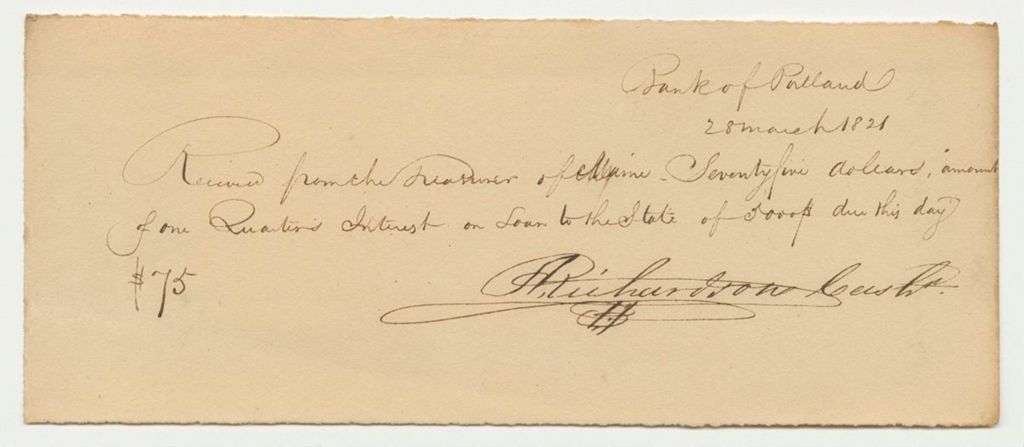 Bank of Portland
28 march 1821
Received from the Treasurer of Maine Seventyfive dollars, amount
of one Quarters Interest on Loan to the State of 5000$ due this day
$75
Richardson Cashr.